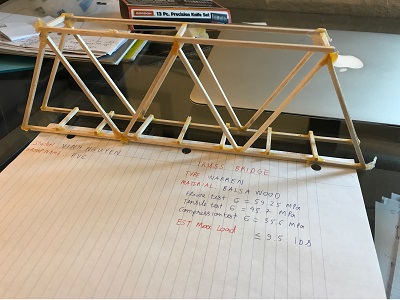 13 Pc. Precision Knife Set
TRUSS BRIDGE
TYPE WARREN
MATERIAL BALSA WOOD
test 6 = 59.25 MPa
Tensile test 6 = 45.7 MPa
Compression test 6 = 35.6 MPa
EST Max Load ≤ 9.5 lbs